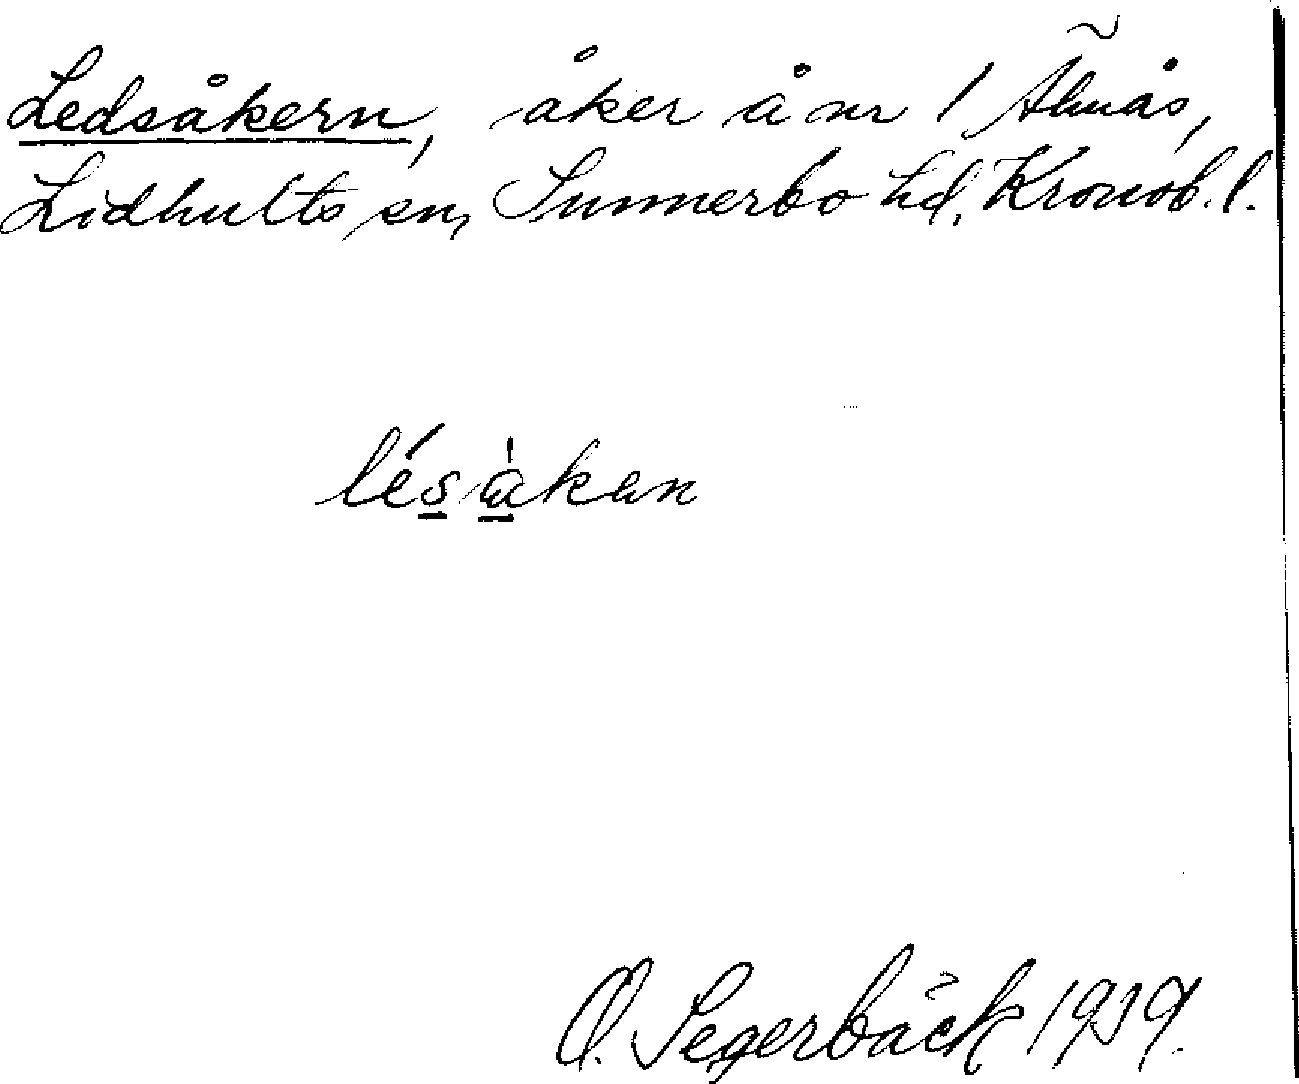 Ledsåkern, åker å nr 1 Älmås,
Lidhults sn, Sunnerbo hd, Kronob. l.
lésàkan
O. Segerbäck 1939.